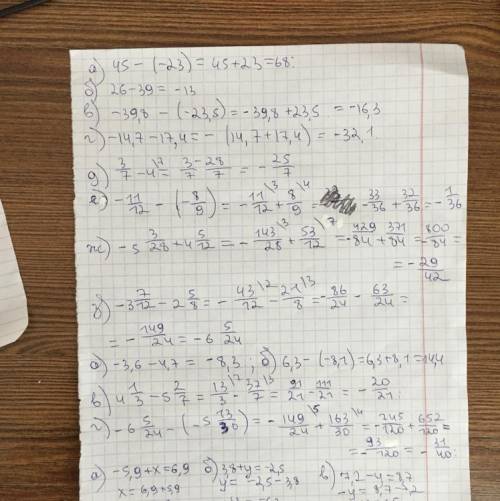 а) 45 - (-23) = 45 + 23 = 68;
б) 26 - 39 = -13
в) -39,8 - (-23,5) = -39,8 + 23,5 = -16,3
г) -14,7 - 17,4 = -(14,7 + 17,4) = -32,1
д) 3/7 - 4\7 = 3-28/7 = -25/7
е) -11/12 - (-8/9) = -11/12\3 + 8/9\4 = -33/36 + 32/36 = -1/36
ж) -5 3/28 + 4 5/12 = -143/28\3 + 53/12\7 = -429/84 + 371/84 = -800/84 =
= -29/42
з) -3 7/12 - 2 5/8 = -43/12\2 - 21/8\3 = -86/24 - 63/24 =
= -149/24 = -6 5/24
а) -3,6 - 4,7 = -8,3; б) 6,3 - (-8,1) = 6,3 + 8,1 = 14,4
в) 4 1/3 - 5 2/7 = 13/3\7 - 37/7\3 = 91/21 - 111/21 = -20/21;
г) -6 5/24 - (-5 13/30) = -149/24\5 + 163/30\4 = -745/120 + 652/120 =
= -93/120 = -31/40;
а) -5,9 + x = 6,9 б) 3,8 + y = -2,5 в) 7,2 - y = 8,7
x = 6,9 + 5,9 y = -2,5 - 3,8 -y = 8,7 - 7,2